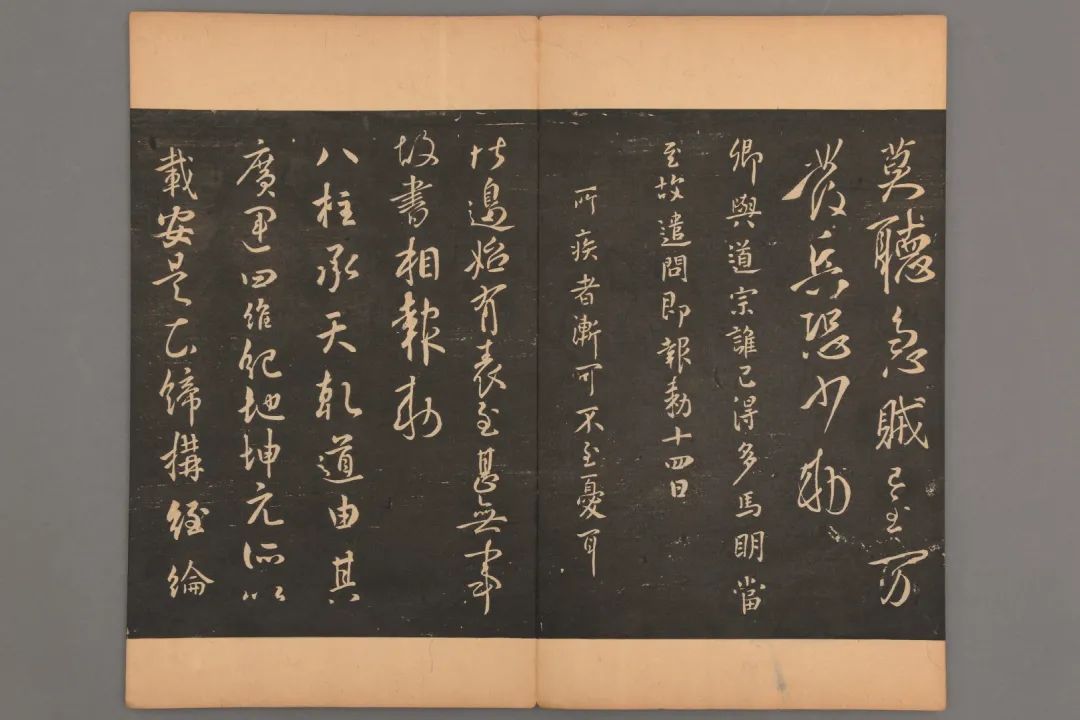 莫聽急賊已至万
發兵恐少勅
卿與道宗誰已得多馬明當
至故遣問即報勅十四日
所疾者漸可不至憂耳
比邊始有表至甚無事
故書相報勅
八柱承天乾道由其
廣運四維紀地坤元所以
載安是以締構經綸